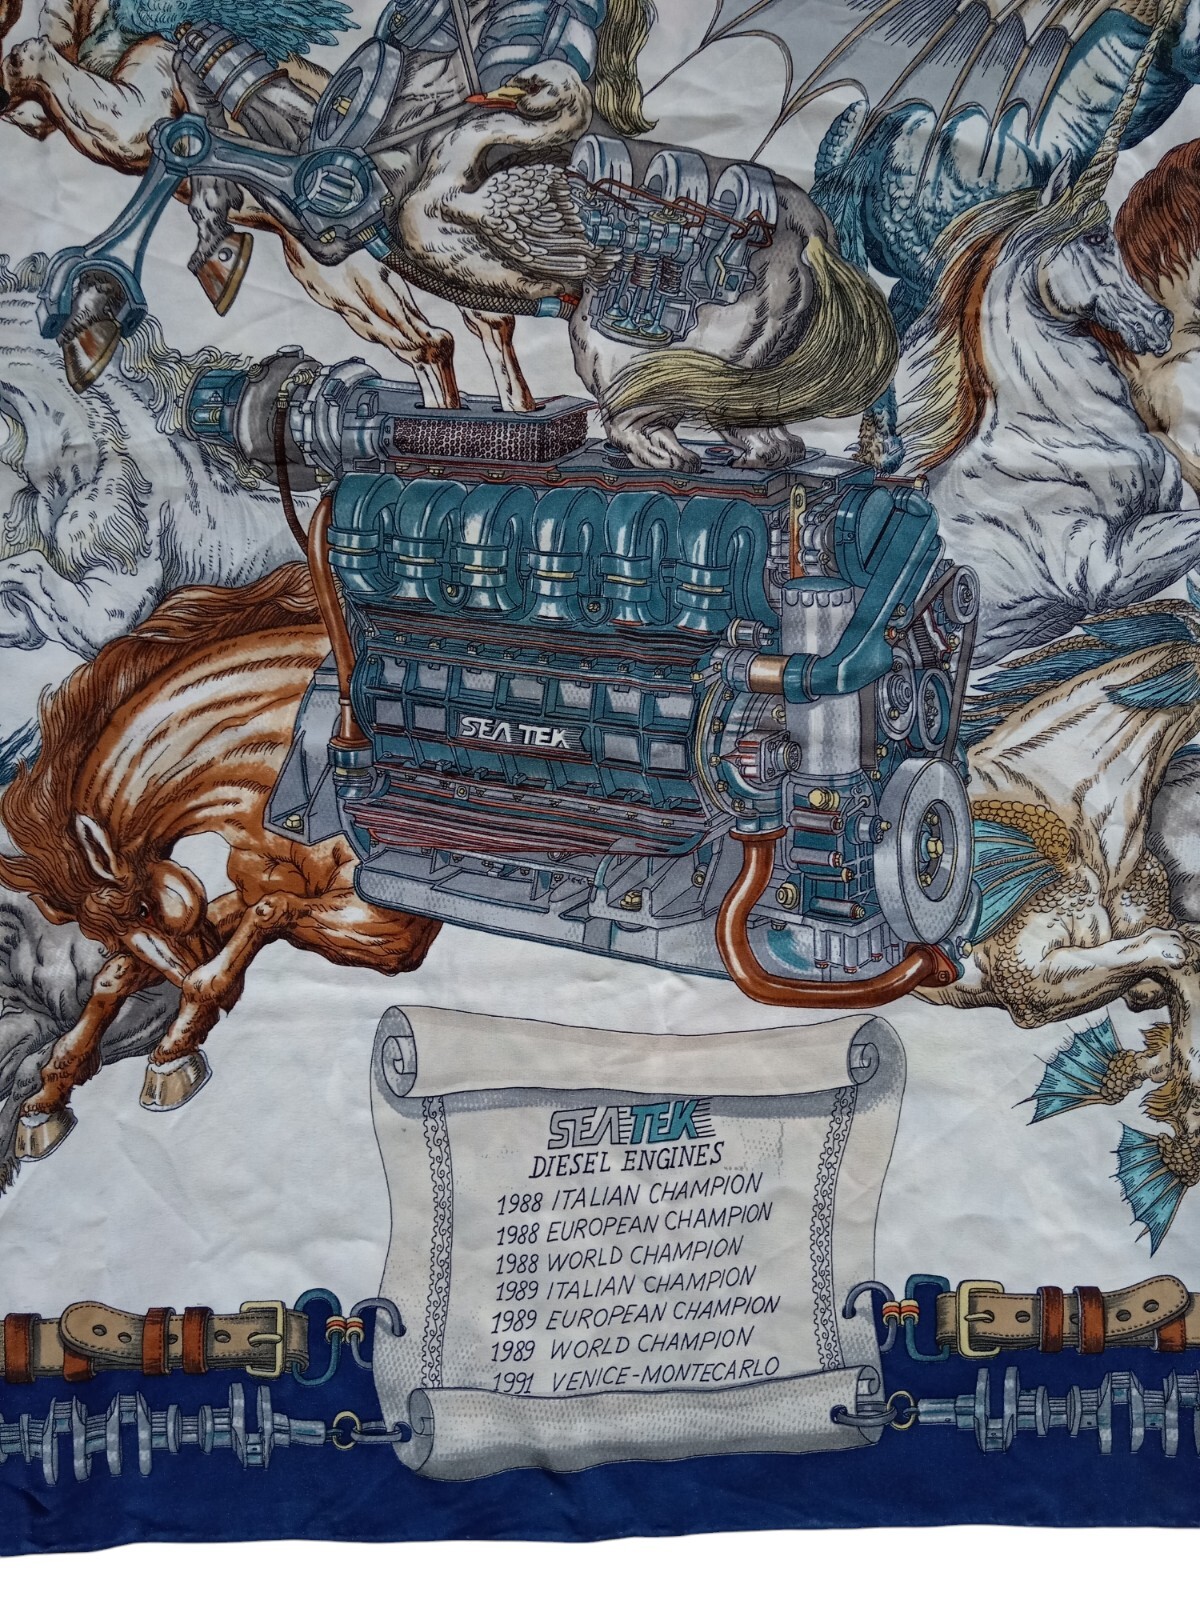 SEA TEK
SEATEK
DIESEL ENGINES
1988 ITALIAN CHAMPION
1988 EUROPEAN CHAMPION
1988 WORLD CHAMPION
1989 ITALIAN CHAMPION
1989 EUROPEAN CHAMPION
1989 WORLD CHAMPION
1991 VENICE-MONTECARLO